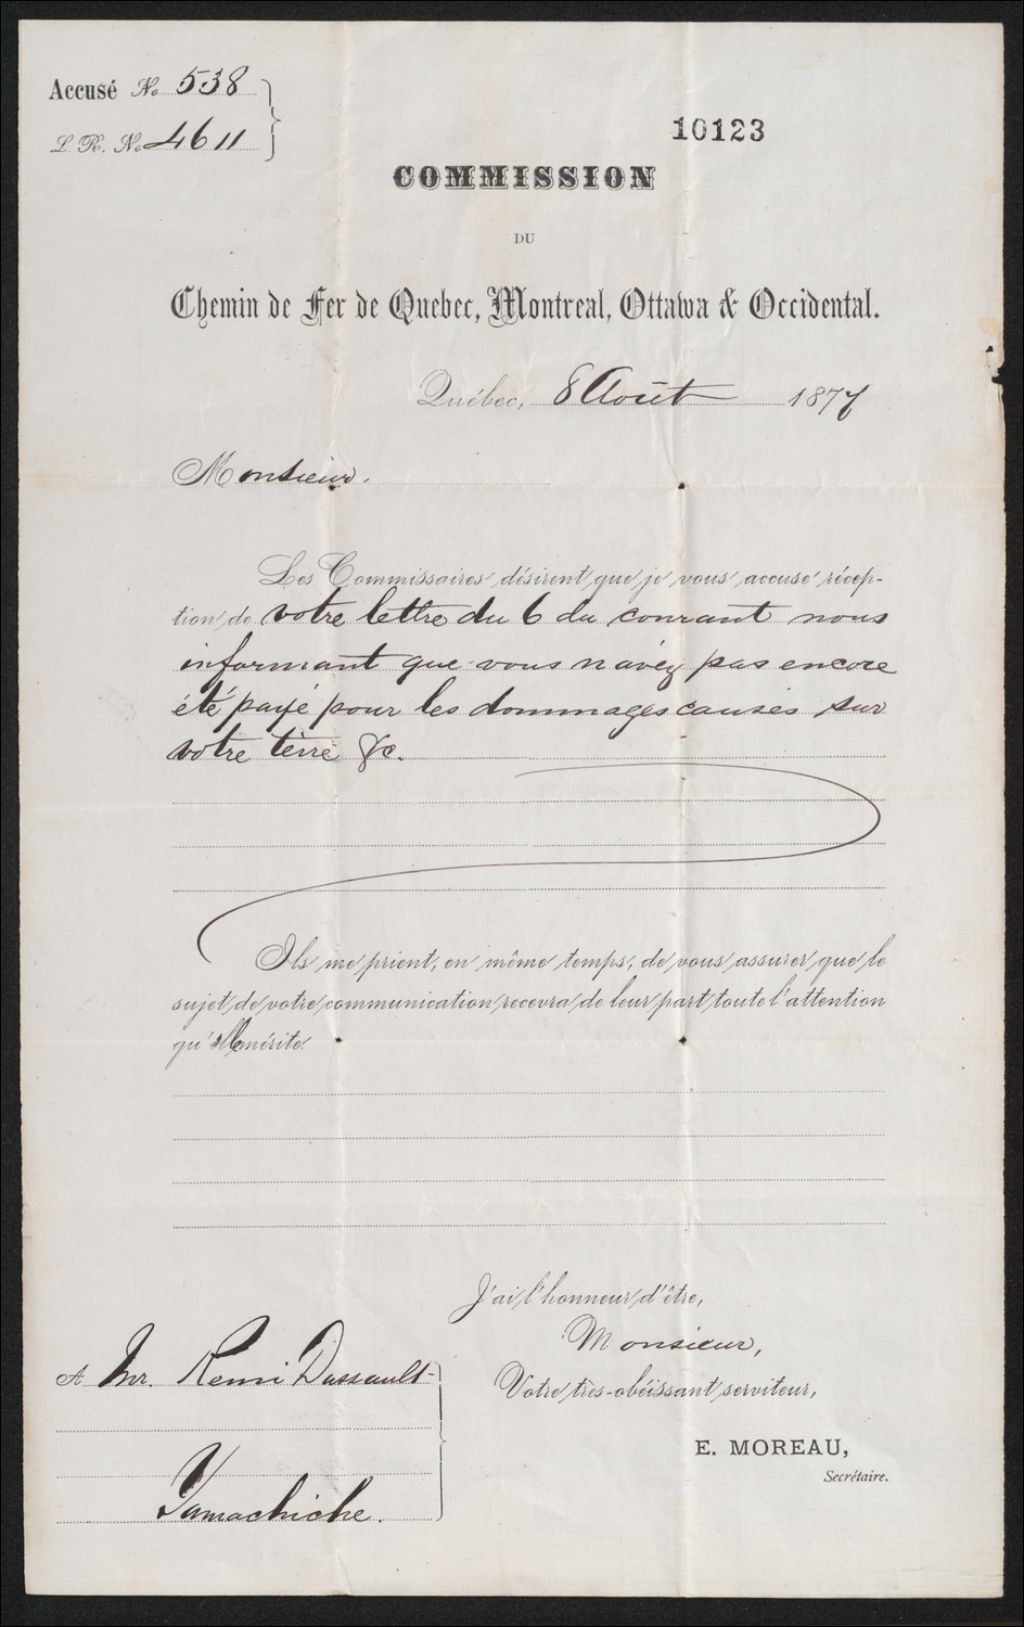 Accusé No 538
L. R. No 4611
10123
COMMISSION
DU
Chemin de Fer de Quebec, Montreal, Ottawa & Occidental.
Québec, 8 Août 1877
Monsieur.
Les Commissaires désirent que je vous accuse récep-
tion de votre lettre du 6 du courant nous
informant que vous n'avéz pas encore
été payé pour les dommages causés sur
votre terre &c.
Ils me prient, en même temps, de vous assurer que le
sujet de votre communication recevra de leur part toute l'attention
qu'il mérite.
J'ai l'honneur d'être,
Monsieur,
Votre très-obéissant serviteur,
E. MOREAU,
Secrétaire.
A Mr. Remi Dussault
Yamachiche.